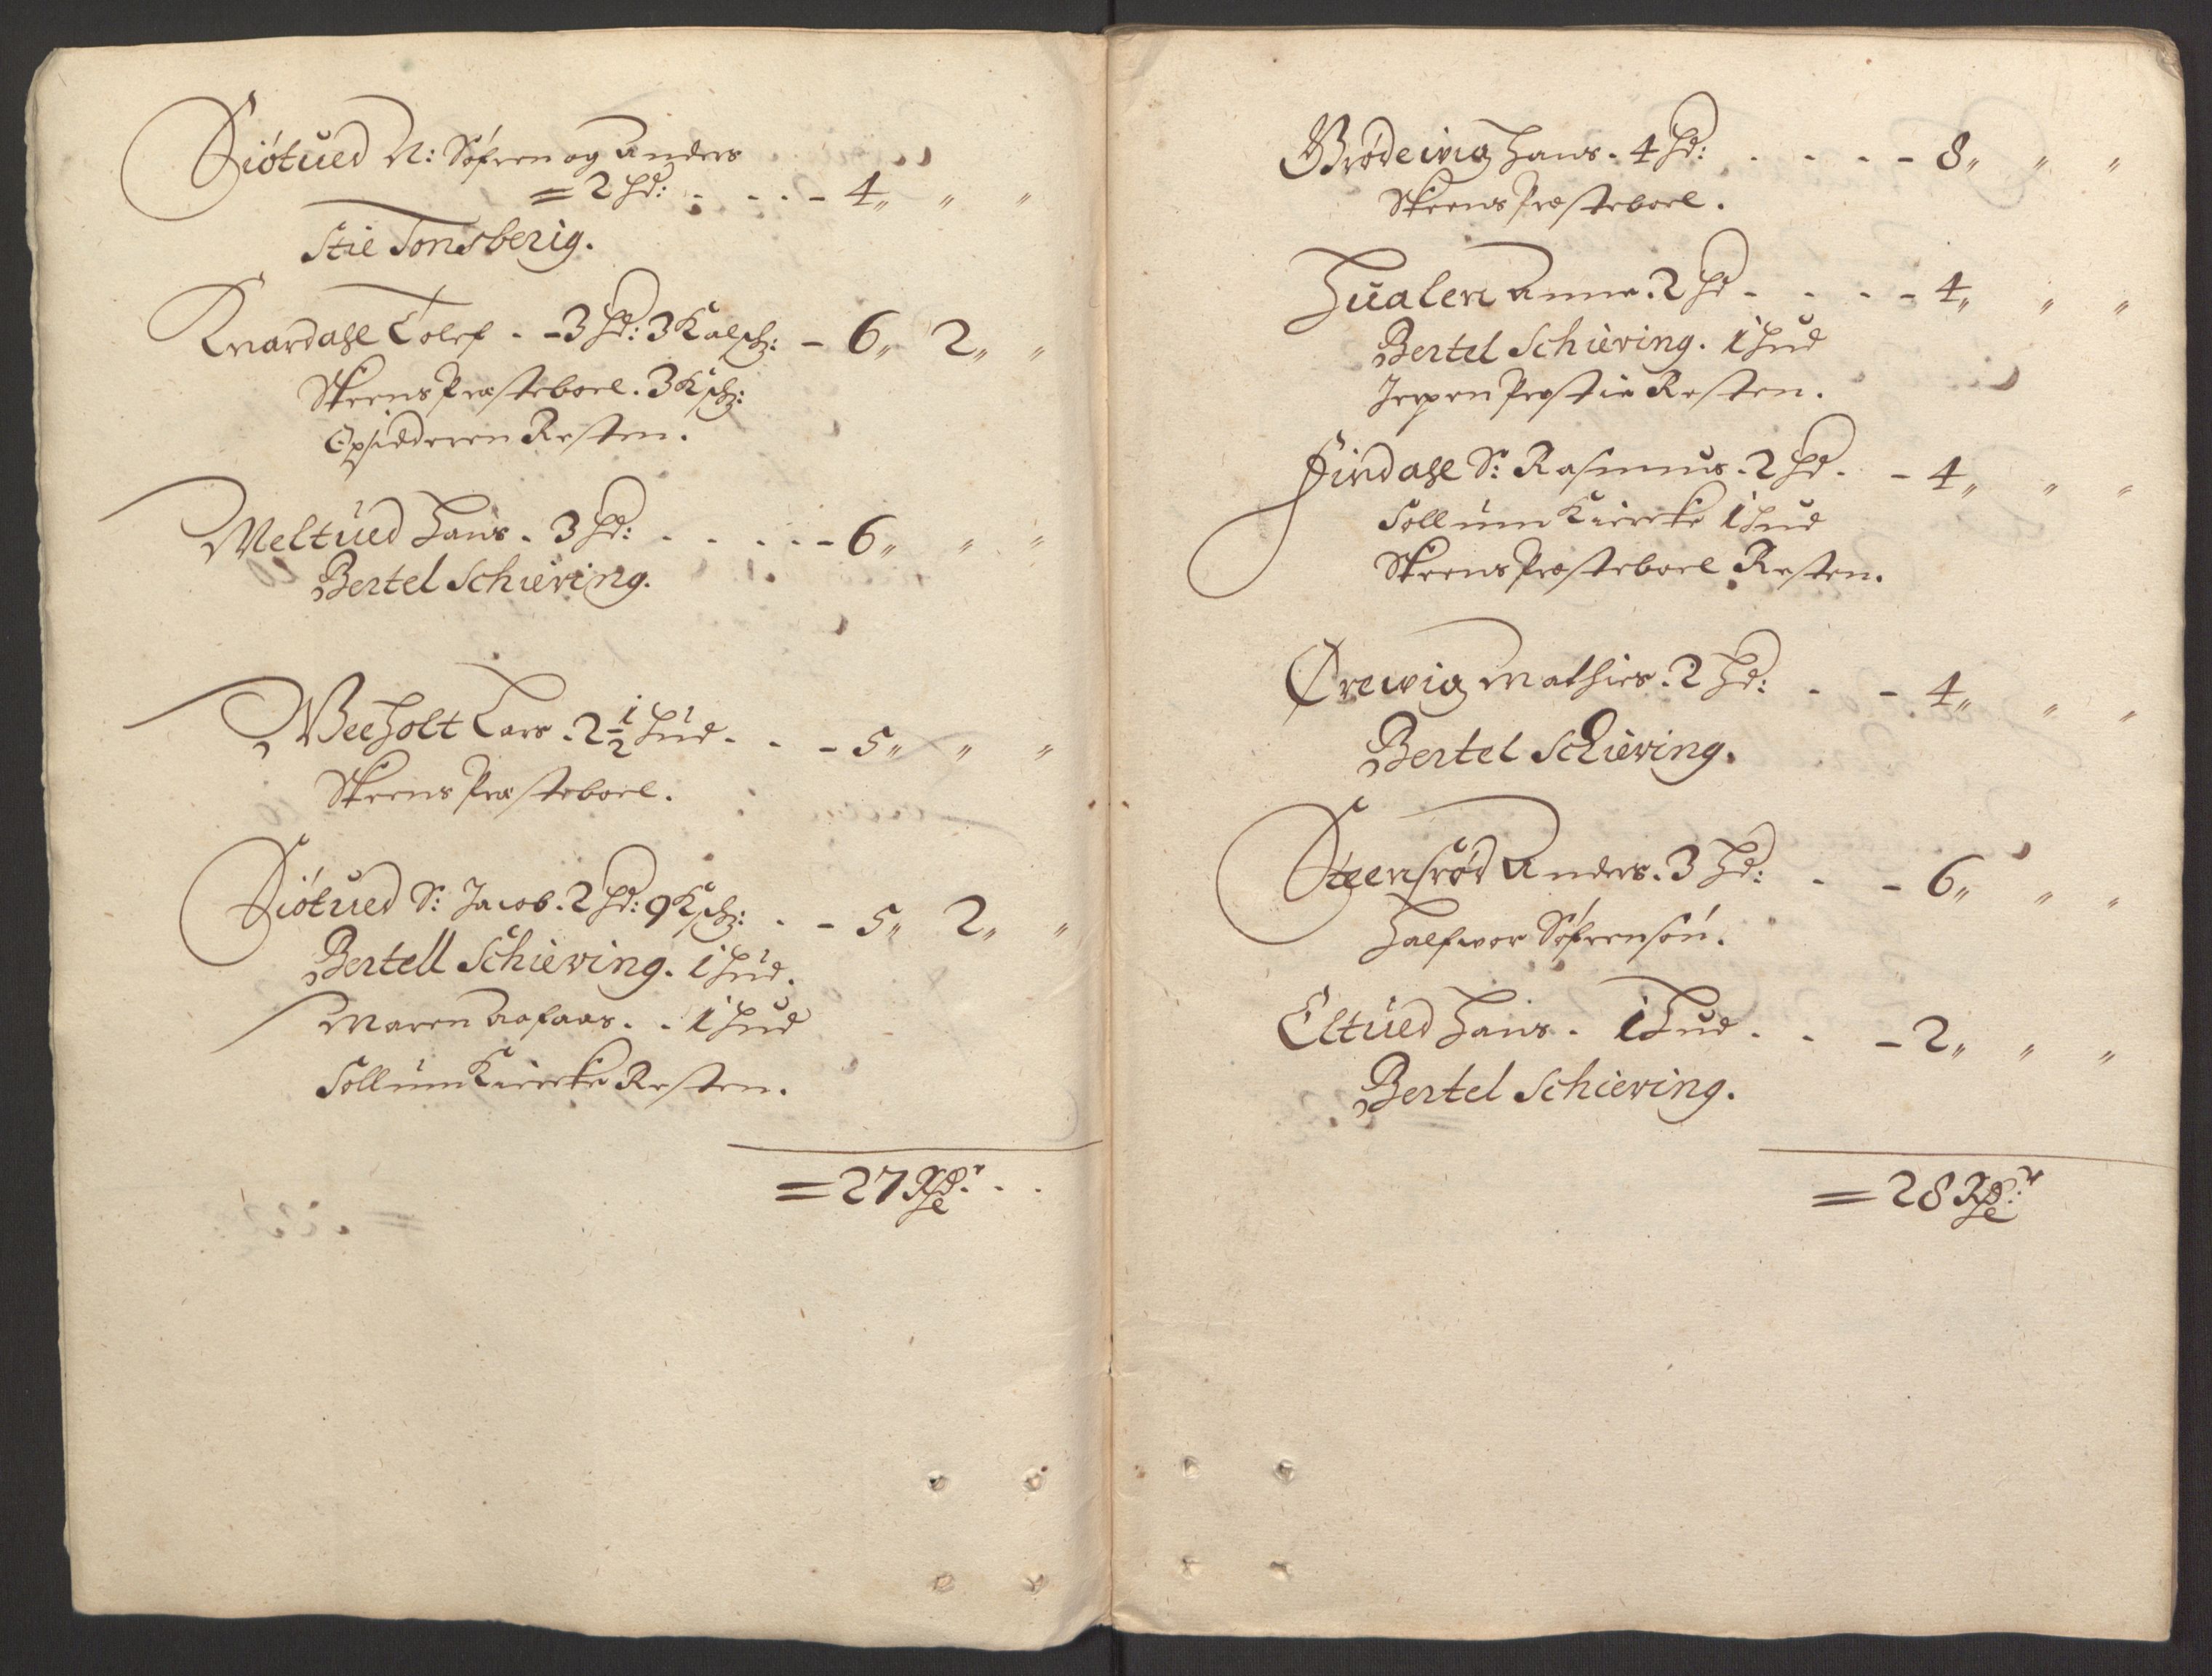 Siötued N: Söfren og Anders
= 2 Hd: . . . . - 4 „ „ „
Stie Tonsberig.
Knardahl Tolef . - 3 Hd: 3 Kalsch: - 6 „ 2 „ „
Skeens Præsteboel. 3 Ksch:
Opsidderen Resten.
Meltued Hans . 3 Hd: . . . . . - 6 „ „ „
Bertel Schiering.
Veeholt Lars . 2 1/2 Hud . . - 5 „ „ „
Skeens Præsteboel.
Siötued S: Jacob . 2 Hd: 9 Ksch: . - 5 „ 2 „ „
Bertell Schiering. 1 Hud.
Maren Aafaas . . 1 Hud
Sollum Kiercke Resten.
= 27 Rdr . .
Brödewig Hans . 4 Hd: . . . . - 8 „ „ „
Skeens Præsteboel.
Hualen Anne . 2 Hd - . . . - 4 „ „ „
Bertel Schiering. 1 Hud
Jrgen Resten.
Findahl S: Rasmus . 2 Hd . - 4 „ „ „
Sollum Kiercke 1 Hud
Skeens Præsteboel Resten.
Ørewig Mathies . 2 Hd: . - 4 „ „ „
Bertel Schiering.
Steensröd Anders . 3 Hd: . - 6 „ „ „
Halfwor Söfrensön.
Eltued Hans . 1 Hud . . - 2 „ „ „
Bertel Schiering.
= 28 Rdr